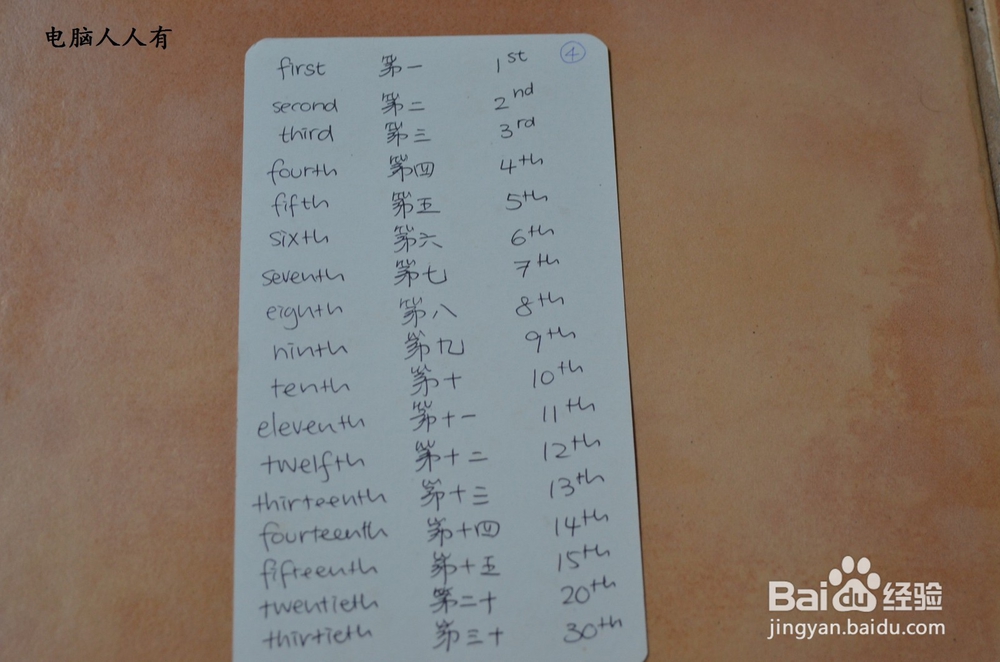 电脑人人有
④
first 第一 1st
second 第二 2nd
third 第三 3rd
fourth 第四 4th
fifth 第五 5th
sixth 第六 6th
seventh 第七 7th
eighth 第八 8th
ninth 第九 9th
tenth 第十 10th
eleventh 第十一 11th
twelfth 第十二 12th
thirteenth 第十三 13th
fourteenth 第十四 14th
fifteenth 第十五 15th
twentieth 第二十 20th
thirtieth 第三十 30th
Baidu 经验
jingyan.baidu.com